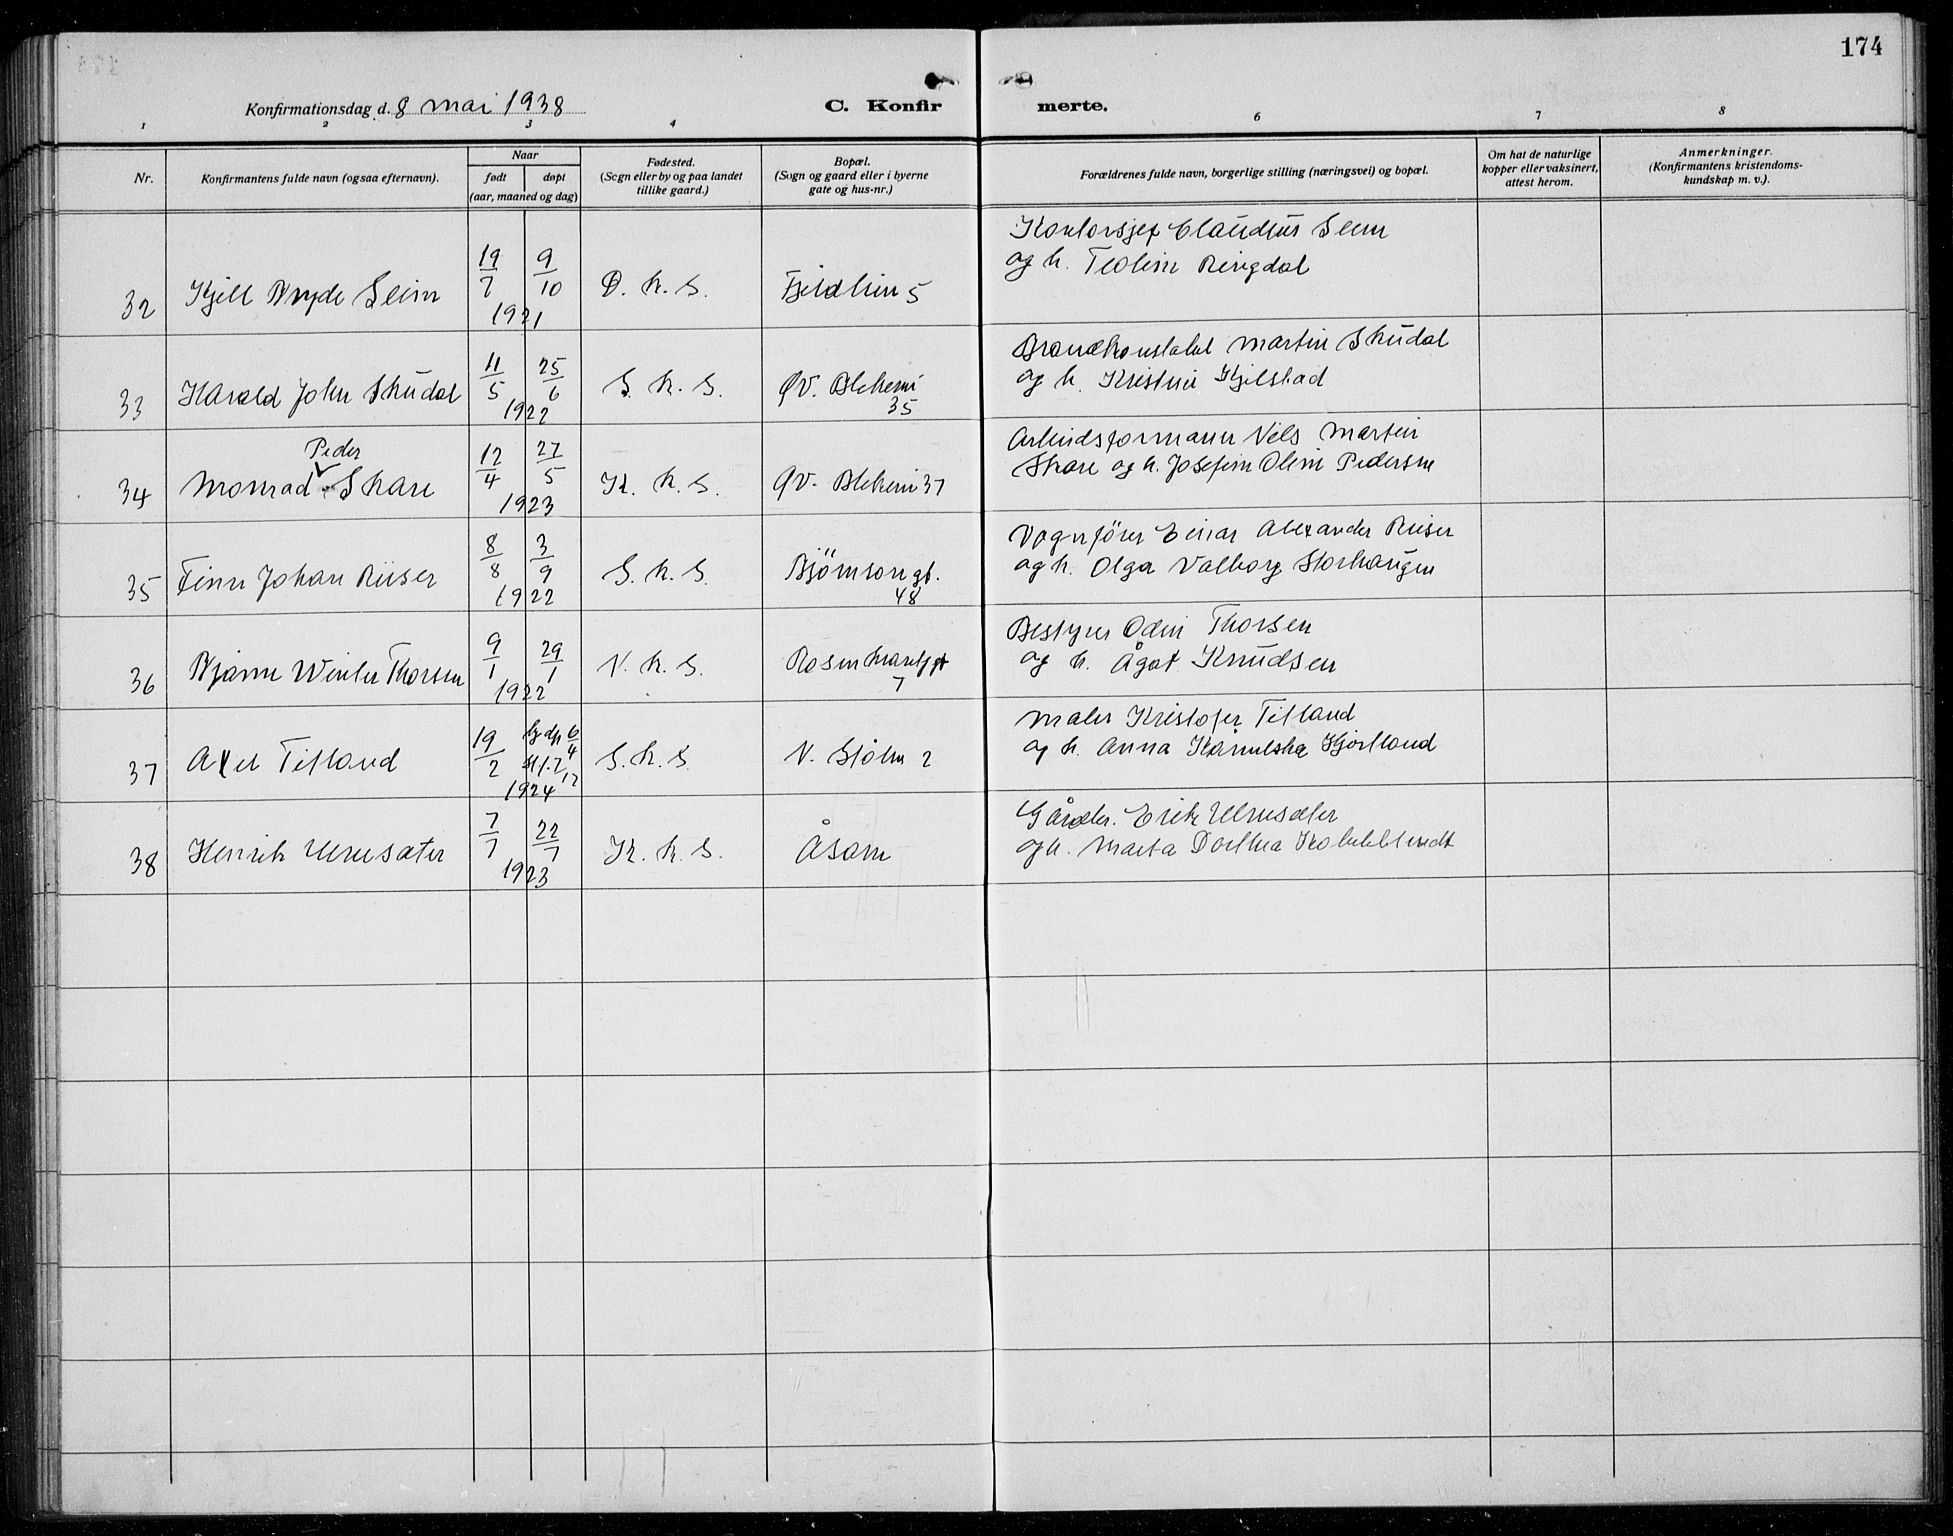 174
Konfirmationsdag d. 8 mai 1938
C. Konfirmerte.
1 2 3 4 6 7 8
Nr.
Konfirmantens fulde navn (ogsaa efternavn).
Naar
født
døpt
(aar, maaned og dag)
Fødested.
(Sogn eller by og paa landet
tillike gaard.)
Bopæl.
(Sogn og gaard eller i byerne
gate og hus-nr.)
Forældrenes fulde navn, borgerlige stilling (næringsvei) og bopæl.
Om hat de naturlige
kopper eller vaksinert,
attest herom.
Anmerkninger.
(Konfirmantens kristendoms-
kundskap m. v.).
32 Kjell Bryde Seim 19/7 9/10 1921 D. k. S. Fjeldlien 5
Kontorsjef Claudius Seim
og h. Teoline Ringdal
33 Harald John Skudal 11/5 25/6 1922 S. k. S. Øv. Blekevei 35
Brandkonstabel Martin Skudal
og h. Kristine Kjilstad
34 Monrad Peder Skare 12/4 27/5 1923 K. k. S. Øv. Blekevei 37
Arbeidsformann Nels Martin
Skare og h. Josefine Oline Pedersen
35 Finn Johan Riiser 8/8 3/9 1922 S. k. S. Bjørnsongt. 48
Vognfører Einar Alexander Riiser
og h. Olga Valborg Storhaugen
36 Bjarne Winter Thorsen 9/1 29/1 1922 N. k. S. Rosenkrantzgt 7
Bestyrer Odin Thorsen
og h. Ågot Knudsen
37 Axel Titland 19/2 hjdp 6/4 stf. 7/12 1924 S. k. S. N. Stølen 2
Maler Kristofer Titland
og h. Anna Hjortland
38 Henrik Ulvesæter 7/7 22/7 1923 K. k. S. Åsane
Gårdbr. Erik Ulvesæter
og h. Marta Dorthea